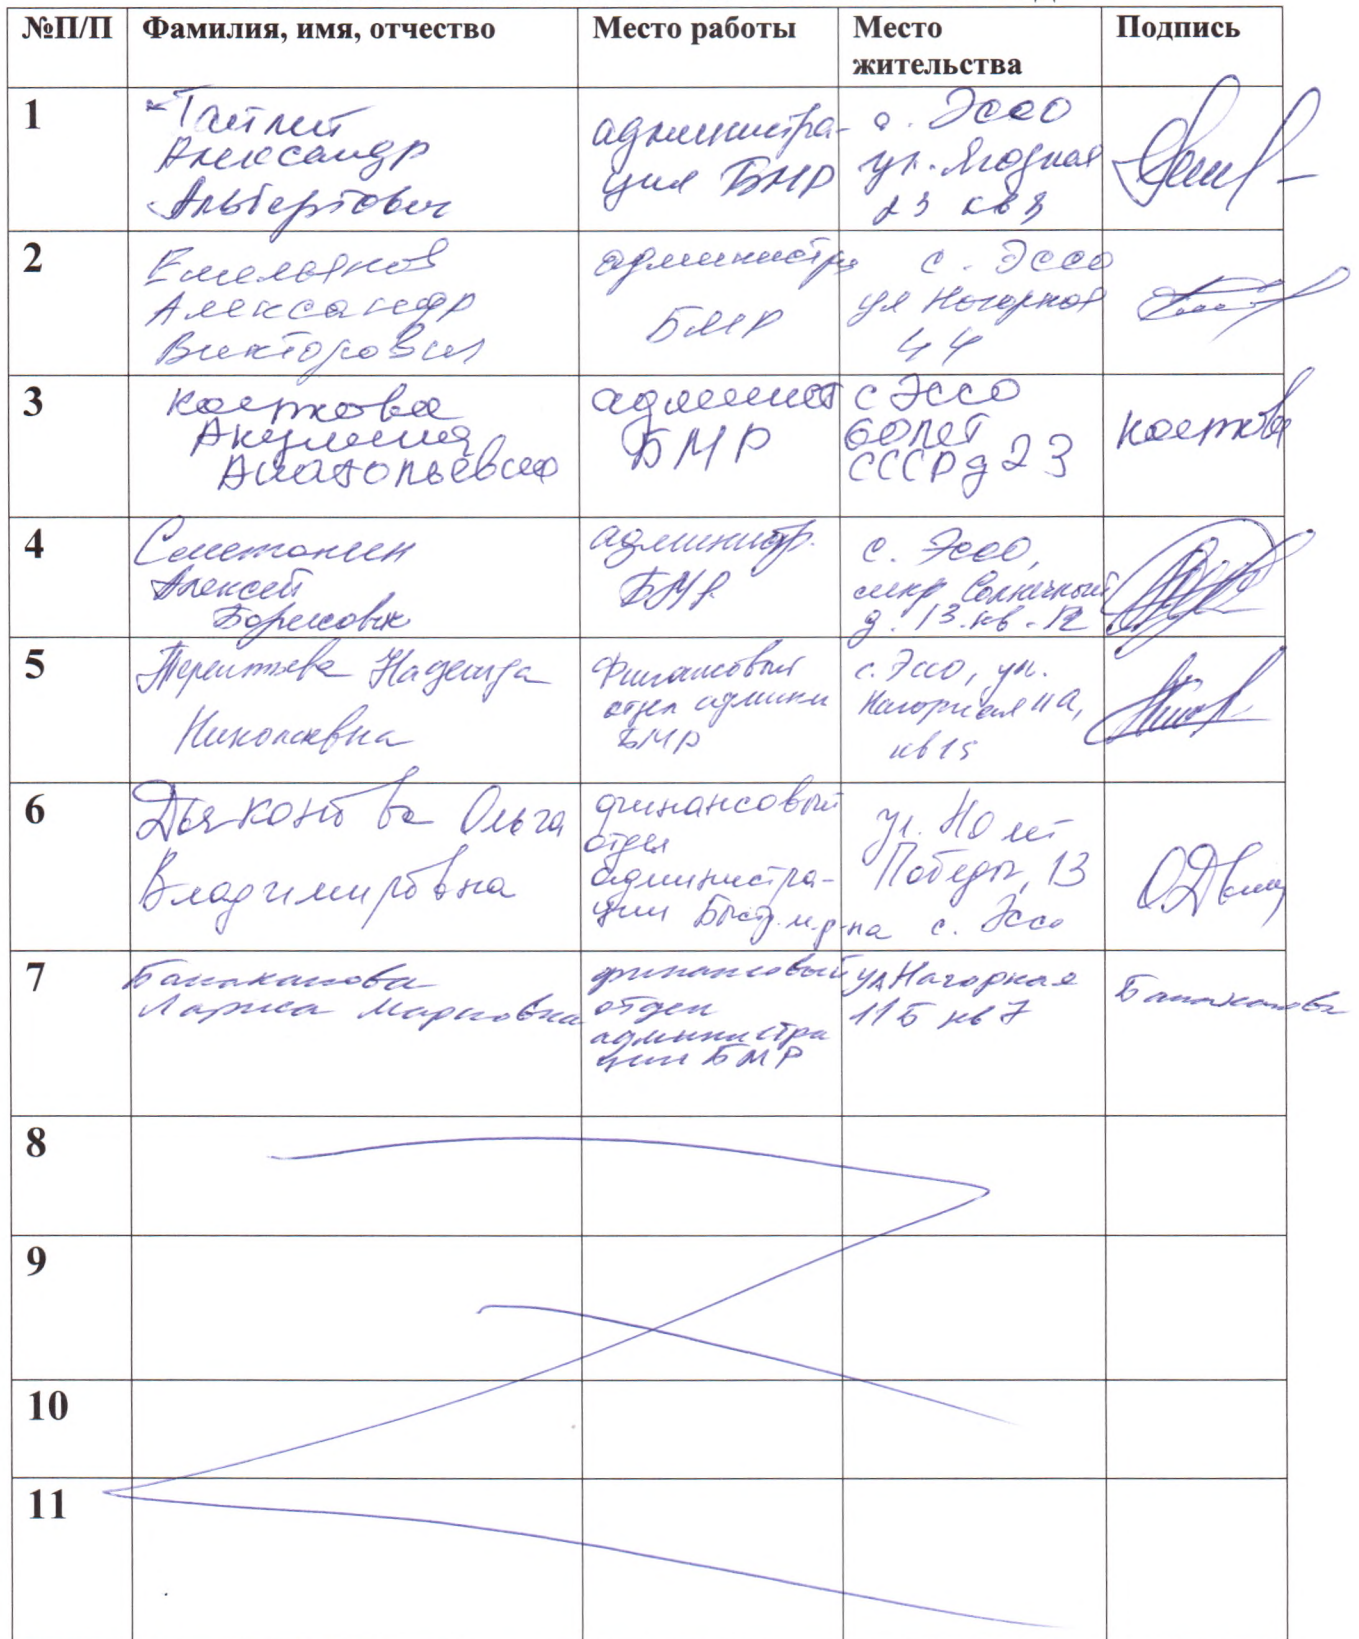 №П/П Фамилия, имя, отчество Место работы Место жительства Подпись
1
Александр
Альбертович
администра-
ция БМР
с. Эссо
ул. Ягодная
23 кв
2
Емельянов
Александр
Викторович
администр
БМР
с. Эссо
ул Нагорная
44
3
Акулина
Анатольевна
админист
БМР
с Эссо
60 лет
СССР д 23
4
Сметанин
Алексей
Борисович
администр.
БМР.
с. Эссо,
мкр Солнечный
д. 13. кв. 12
5
Терентьева Надежда
Николаевна
Финансовый
отдел админи
БМР
с. Эссо, ул.
Нагорная 11а,
кв 15
6
Дьяконова Ольга
Владимировна
финансовый
отдел
администра-
ции Быстр.м.р-на
ул. 40 лет
Победы, 13
с. Эссо
7
Лариса Марковна
финансовый
отдел
администра
ции БМР
ул Нагорная
11Б кв 7
8
9
10
11